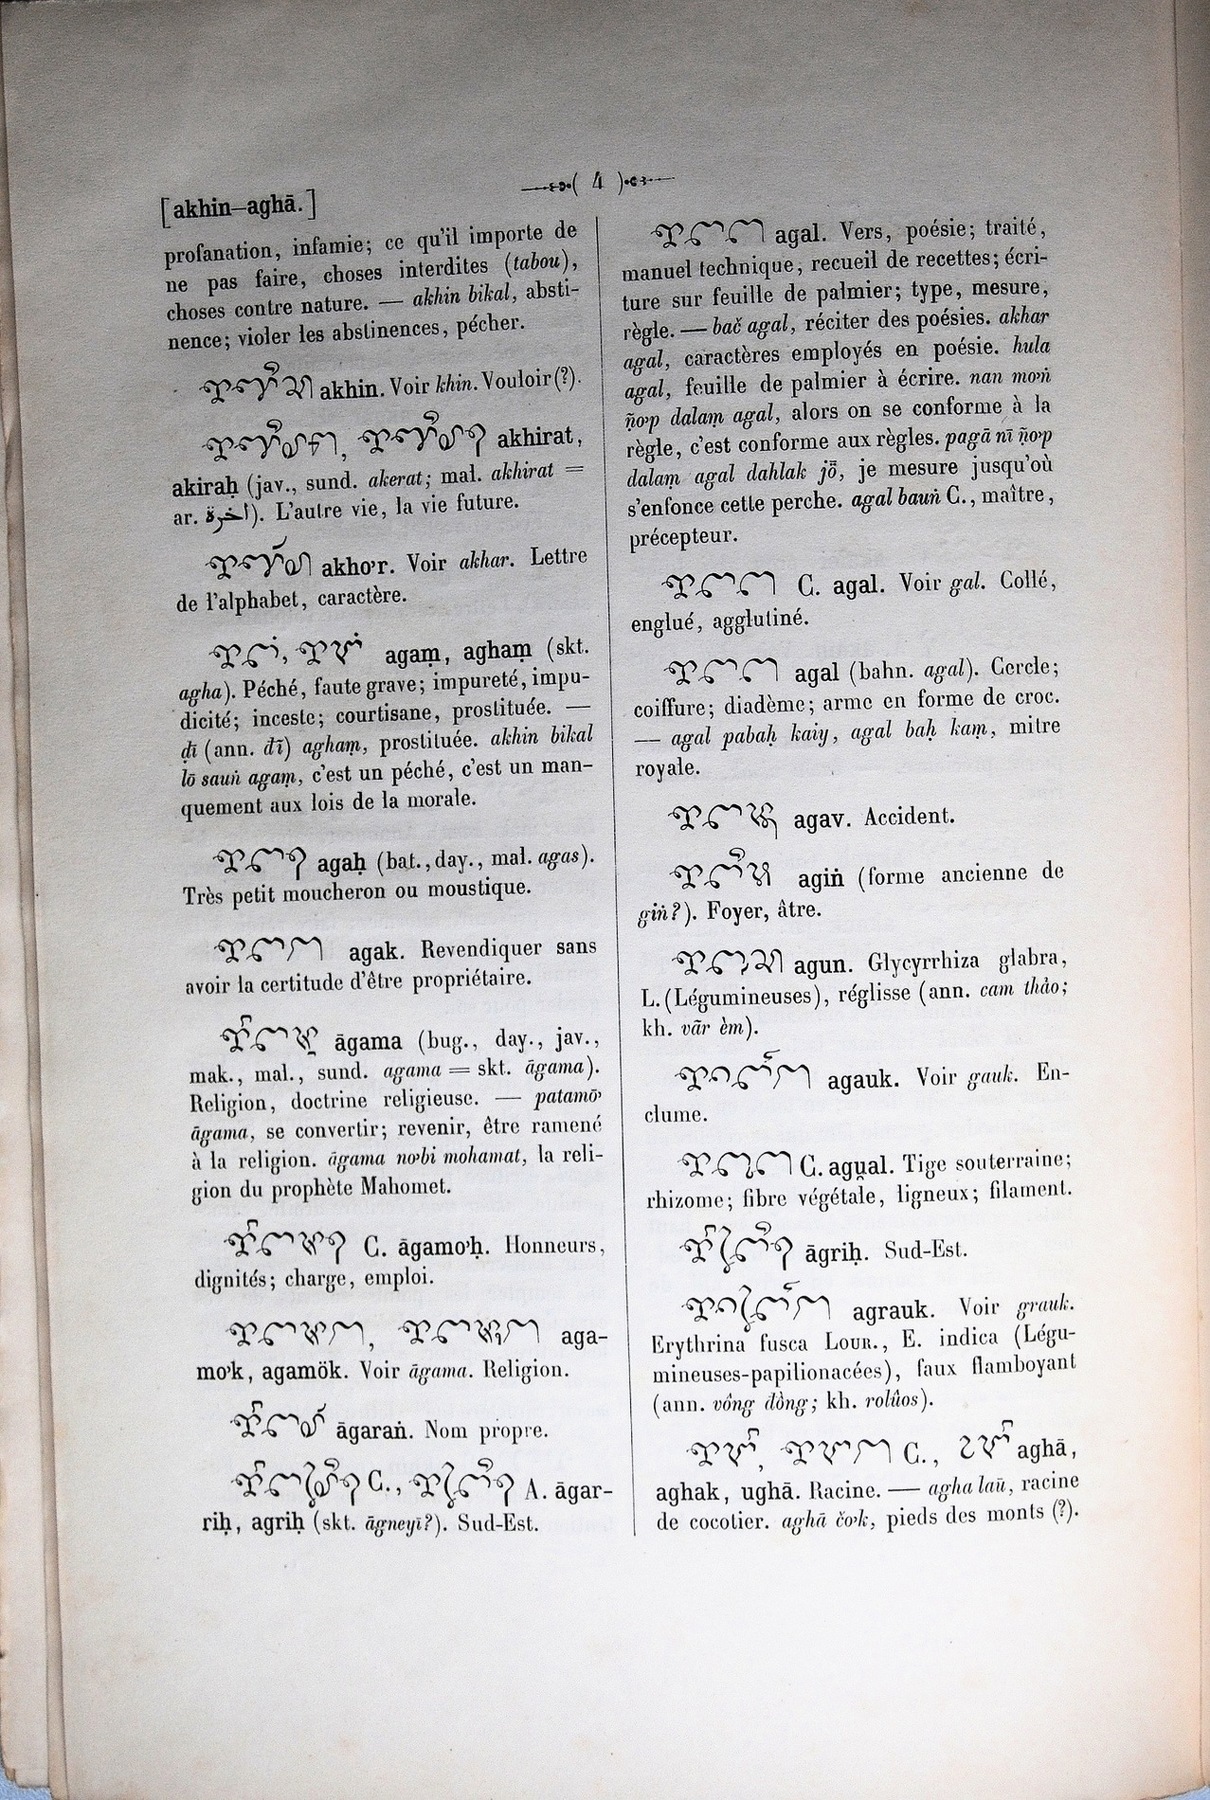 [akhin–aghā.]
( 4 )
profanation, infamie; ce qu'il importe de
ne pas faire, choses interdites (tabou),
choses contre nature. — akhin bikal, absti-
nence; violer les abstinences, pécher.
akhin. Voir khin. Vouloir (?).
akhirat,
akiraḥ (jav., sund. akerat; mal. akhirat =
ar. اخرة). L'autre vie, la vie future.
akhơr. Voir akhar. Lettre
de l'alphabet, caractère.
agaṃ, aghaṃ (skt.
agha). Péché, faute grave; impureté, impu-
dicité; inceste; courtisane, prostituée. —
ḍī (ann. đĩ) aghaṃ, prostituée. akhin bikal
lō sauṅ agaṃ, c'est un péché, c'est un man-
quement aux lois de la morale.
agaḥ (bat., day., mal. agas).
Très petit moucheron ou moustique.
agak. Revendiquer sans
avoir la certitude d'être propriétaire.
āgama (bug., day., jav.,
mak., mal., sund. agama = skt. āgama).
Religion, doctrine religieuse. — patamơ̄
āgama, se convertir; revenir, être ramené
à la religion. āgama nơbi mohamat, la reli-
gion du prophète Mahomet.
C. āgamơḥ. Honneurs,
dignités; charge, emploi.
aga-
mơk, agamök. Voir āgama. Religion.
āgaraṅ. Nom propre.
C., A. āgar-
riḥ, agriḥ (skt. āgneyī?). Sud-Est.
agal. Vers, poésie; traité,
manuel technique, recueil de recettes; écri-
ture sur feuille de palmier; type, mesure,
règle. — bač agal, réciter des poésies. akhar
agal, caractères employés en poésie. hula
agal, feuille de palmier à écrire. nan mơṅ
ñơp dalaṃ agal, alors on se conforme à la
règle, c'est conforme aux règles. pagā nī ñơp
dalaṃ agal dahlak jō̆, je mesure jusqu'où
s'enfonce cette perche. agal bauṅ C., maître,
précepteur.
C. agal. Voir gal. Collé,
englué, agglutiné.
agal (bahn. agal). Cercle;
coiffure; diadème; arme en forme de croc.
— agal pabaḥ kaiy, agal baḥ kaṃ, mitre
royale.
agav. Accident.
agiṅ (forme ancienne de
giṅ?). Foyer, âtre.
agun. Glycyrrhiza glabra,
L. (Légumineuses), réglisse (ann. cam thảo;
kh. vãr èm).
agauk. Voir gauk. En-
clume.
C. agu̯al. Tige souterraine;
rhizome; fibre végétale, ligneux; filament.
āgriḥ. Sud-Est.
agrauk. Voir grauk.
Erythrina fusca Lour., E. indica (Légu-
mineuses-papilionacées), faux flamboyant
(ann. vông đồng; kh. rolûos).
C., aghā,
aghak, ughā. Racine. — agha laū, racine
de cocotier. aghā čơk, pieds des monts (?).